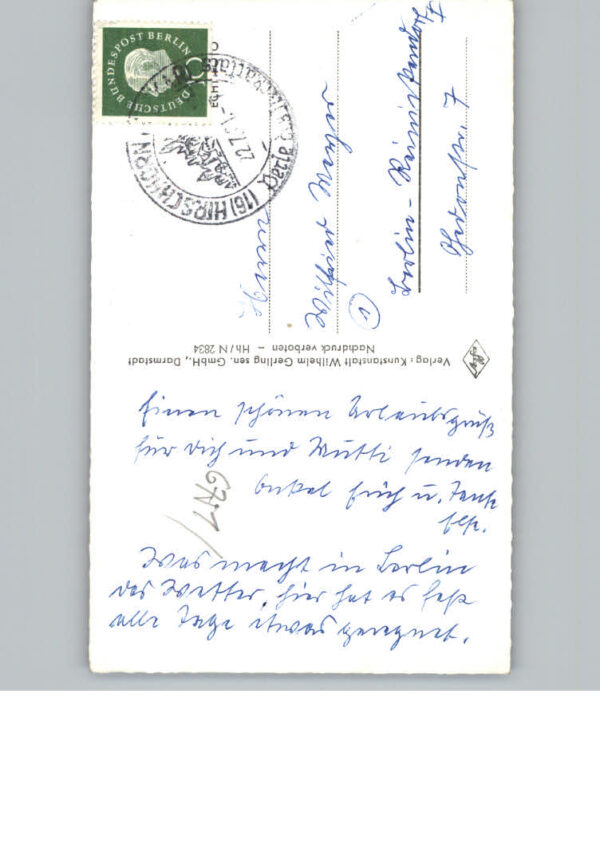 Einen schönen Urlaubsgruß
für Dich und Mutti senden
Onkel Erich u. Tante
Else.
Was macht in Berlin
das Wetter, hier hat es fast
alle Tage etwas geregnet.
Verlag: Kunstanstalt Wilhelm Gerling sen. GmbH., Darmstadt
Nachdruck verboten – Hh/N 2834
DEUTSCHE BUNDESPOST BERLIN
10
(16) HIRSCHHORN
Perle des Neckartales
22.7.
Weber
Berlin - Reinickendorf
7